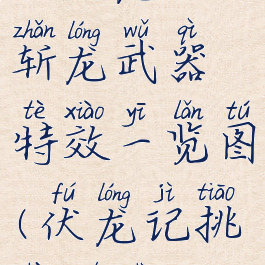 zhǎn lóng wǔ qì
斩龙武器
tè xiào yī lǎn tú
特效一览图
fú lóng jì tiāo
(伏龙记挑